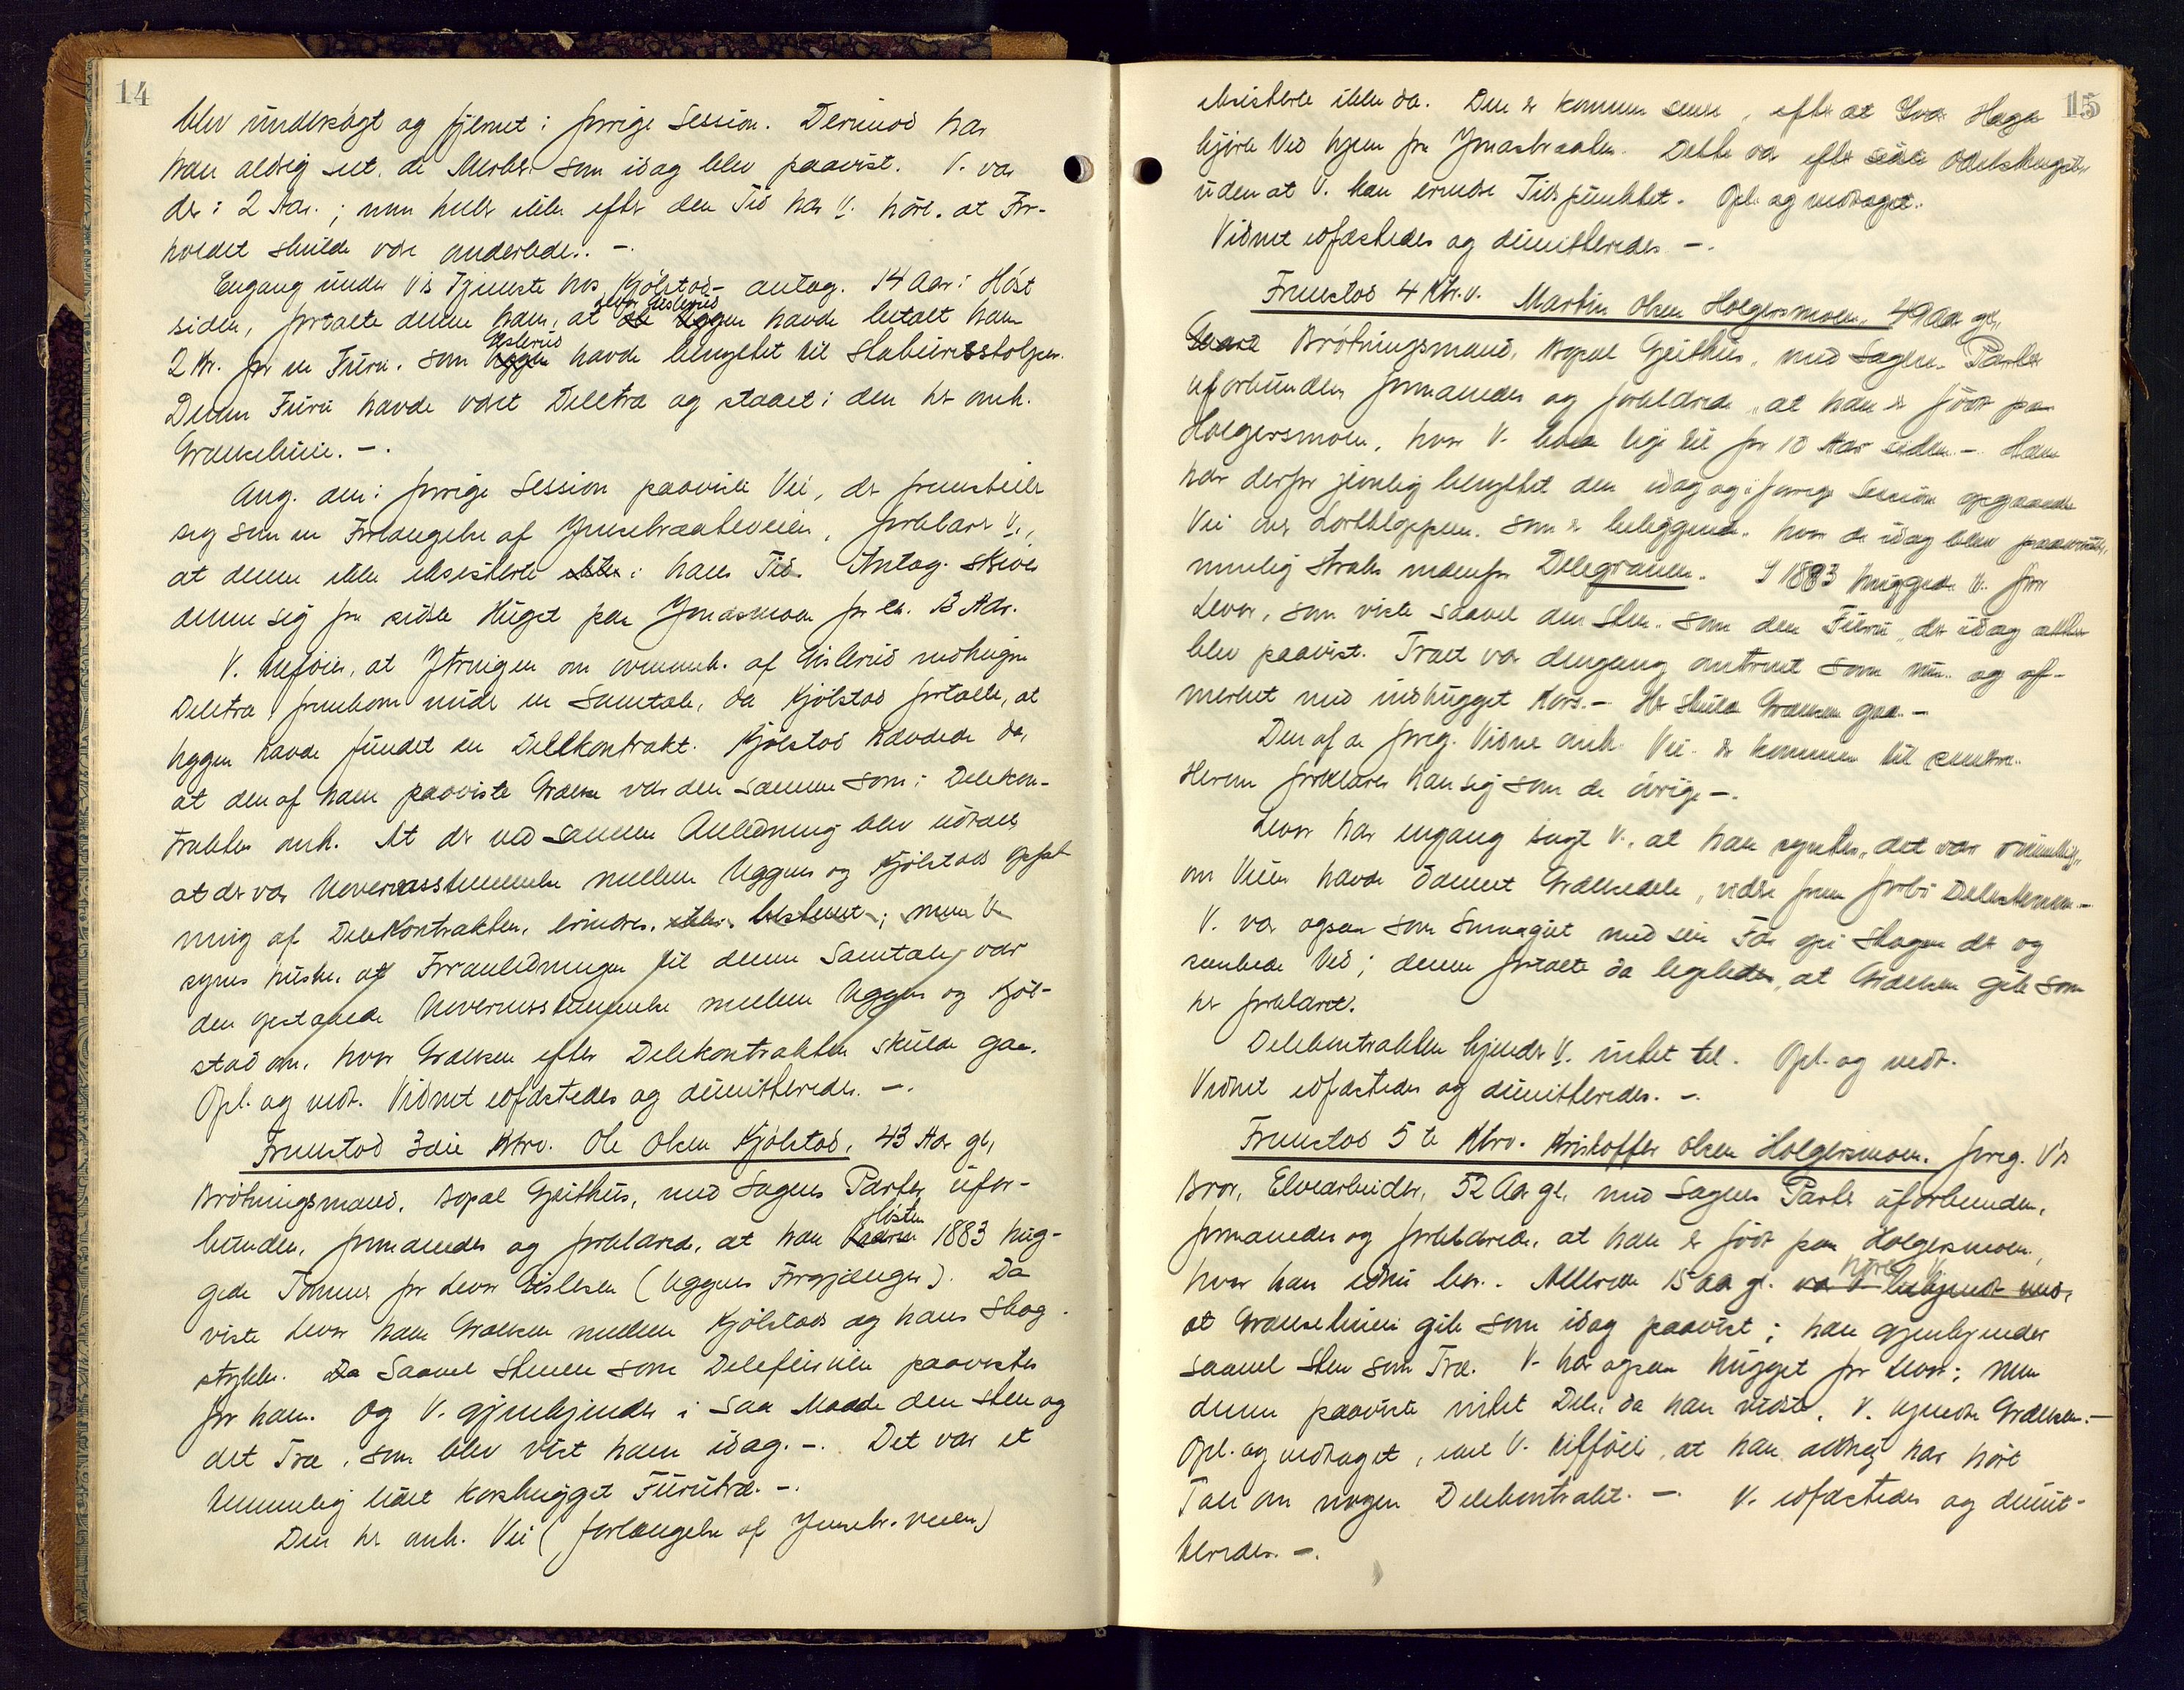 14
blev undersögt og fjernet i forrige Session. Derimod har
han aldrig set de Merker som idag blev paavist. V. var
der i 2 Aar.; men heller ikke efter den Tid har V. hört at For-
holdet skulde være anderledes. -.
Engang under V's Tjeneste hos Kjölstad - antag. 14 Aar i Höst
siden, fortalte denne ham, at Levor Eislerud havde betalt ham
2 Kr. for en Furu. som Eislerud havde benyttet til Stabursstolper.
Denne Furu havde været Deletræ og staaet i den her omh.
Grænselinie. -.
Ang. den i forrige Session paaviste Vei, der fremstiller
sig som en Forlængelse af Ymsebraateveien, forklarer V.,
at denne ikke eksisterte i hans Tid. Antag. skriver
denne sig fra sidste Huget paa Ymasmoen for ca. 13 Aar.
V. tilföier, at Ytringen om ovennævnte af Eislerud nedhugne
Deletræ fremkom under en Samtale, da Kjölstad fortalte, at
Uggen havde fundet en Delekontrakt. Kjölstad hævdede da,
at den af ham paaviste Grænse var den samme som i Delekon-
trakten omh. At der ved samme Anledning blev udtalt
at der var Uoverensstemmelse mellem Uggens og Kjölstads Opfat-
ning af Delekontrakten, erindres ikke bestemt; men V.
synes huske, at Foranledningen til denne Samtale var
den opstaaede Uoverensstemmelse mellem Uggen og Kjöl-
stad om, hvor Grænsen efter Delekontrakten skulde gaa.
Opl. og vedt. Vidnet edfæstedes og dimitteredes. -.
Fremstod 3die Ktrv. Ole Olsen Kjölstad, 43 Aar gl,
Brötningsmand, Bopæl Geithus, med Sagens Parter ufor-
bunden, formanedes og forklared, at han Hösten 1883 hug-
gede Tömmer for Levor Eislesen (Uggens Forgjænger). Da
viste Levor ham Grænsen mellem Kjölstads og hans Skog-
stykke. Da Saavel Stenen som Delefuruen paavistes
for ham. Og V. gjenkjender i saa Maade den Sten og
det Træ, som blev vist ham idag. -. Det var et
temmelig lidet korshugget Furutræ. -.
Den her omh. Vei (forlængelse af Ymsebr. veien)
15
eksisterte ikke da. Den er kommen senere, efter at Haga
kjörte Ved hjem fra Ymasbraaten. Dette var efter sidste
uden at V. kan erindre Tidspunktet. Opl. og vedtaget.
Vidnet edfæstedes og dimitteredes -.
Fremstod 4 Ktr.v. Martin Olsen Holgersmoen, 49 Aar gl,
Brötningsmand, Bopæl Geithus, med Sagens Parter
uforbunden formanedes og forklared, at han er född paa
Holgersmoen, hvor V. boede lige til for 10 Aar siden. - Han
har derfor jevnlig benyttet den idag og i forrige Session opgaaede
Vei over. som er beliggende, hvor de idag blev paavist,
nemlig straks nedenfor Delegranen. I 1883 huggede V. for
Levor, som viste saavel den Sten, som den Furu, der idag atter
blev paavist. Træet var dengang omtrent som nu, og af-
merket med indhugget Kors. - Her skulde Grænsen gaa. -
Den af de foreg. Vidner omh. Vei er kommen til senere.
Herom forklarer han sig som de övrige -.
Levor har engang sagt V., at han syntes, det var rimelig,
om Veien havde dannet Grænsedele, videre frem forbi Delestenen. -
V. var ogsaa som Smaagut med sin Far opi Skogen der og
sankede Ved; denne fortalte da ligeledes, at Grænsen gik som
her forklaret.
Delekontrakten kjender V. intet til. Opl. og vedt.
Vidnet edfæstedes og dimitteredes. -.
Fremstod 5te Ktrv. Kristoffer Olsen Holgersmoen, foreg. V's
Bror, Elvearbeider, 52 Aar gl, med Sagens Parter uforbunden,
formanedes og forklarede, at han er född paa Holgersmoen,
hvor han endnu bor. Allerede 15 Aar gl. hörte V.
at Grænselinien gik som idag paavist; han gjenkjender
saavel Sten som Træ. V. har ogsaa hugget for Levor; men
denne paaviste intet Dele, da han vidste, V. kjendte Grænsen. -
Opl. og vedtaget, idet V. tilföier, at han aldrig har hört
Tale om nogen Delekontrakt. - V. edfæstedes og dimit-
teredes. -.